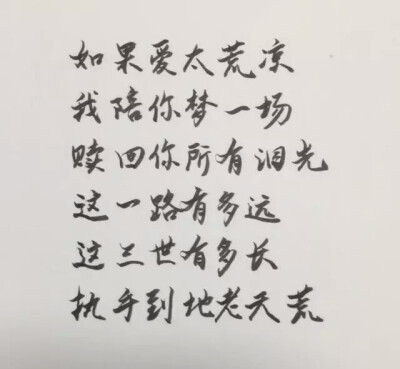 如果爱太荒凉
我陪你梦一场
赎回你所有泪光
这一路有多远
这三世有多长
执手到地老天荒